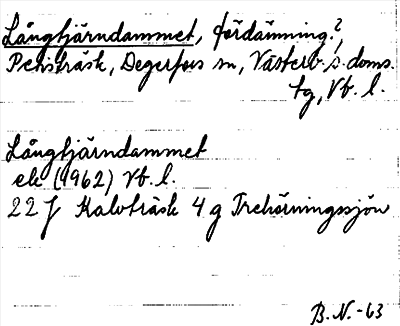 Långtjärndammet, fördämning?,
Pensträsk, Degerfors sn, Västerb. s. doms.
tg, Vb. l.
Långtjärndammet
ek (1962) Vb. l.
22 J Kalvträsk 4 g Trehörningssjön
B. N. -63